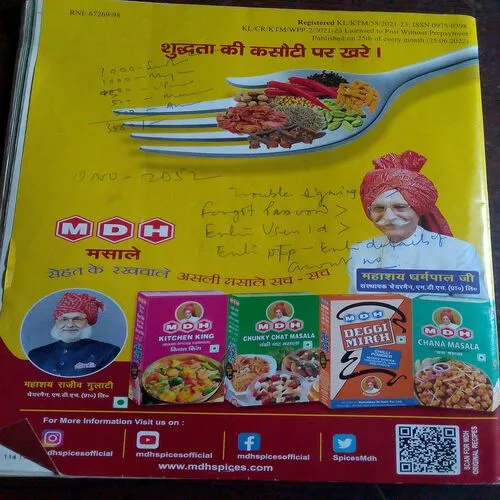 RNI/ 67269/98
Registered KL/KTM/58/2021-23; ISSN 0975-0398
KL/CR/KTM/WPP-2/2021-23 Licensed to Post Without Prepayment
Published on 25th of every month (25.06.2022)
शुद्धता की कसौटी पर खरे।
1000 -
1000 -
500
Trouble signing
Forgot Password >
Enter User Id >
Enter OTP - Enter details of
MDH
मसाले
सेहत के रखवाले असली मसाले सच - सच
महाशय धर्मपाल जी
संस्थापक चेयरमैन, एम.डी.एच. (प्रा०) लि०
महाशय राजीव गुलाटी
चेयरमैन, एम.डी.एच. (प्रा०) लि०
MDH
KITCHEN KING
किचन किंग
MDH
CHUNKY CHAT MASALA
चंकी चाट मसाला
MDH
DEGGI
MIRCH
CHILLI
POWDER
MDH
CHANA MASALA
चना मसाला
For More Information Visit us on :
mdhspicesofficial
mdhspicesofficial
mdhspicesofficial
SpicesMdh
www.mdhspices.com
SCAN FOR MDH
ORIGINAL RECIPES
114